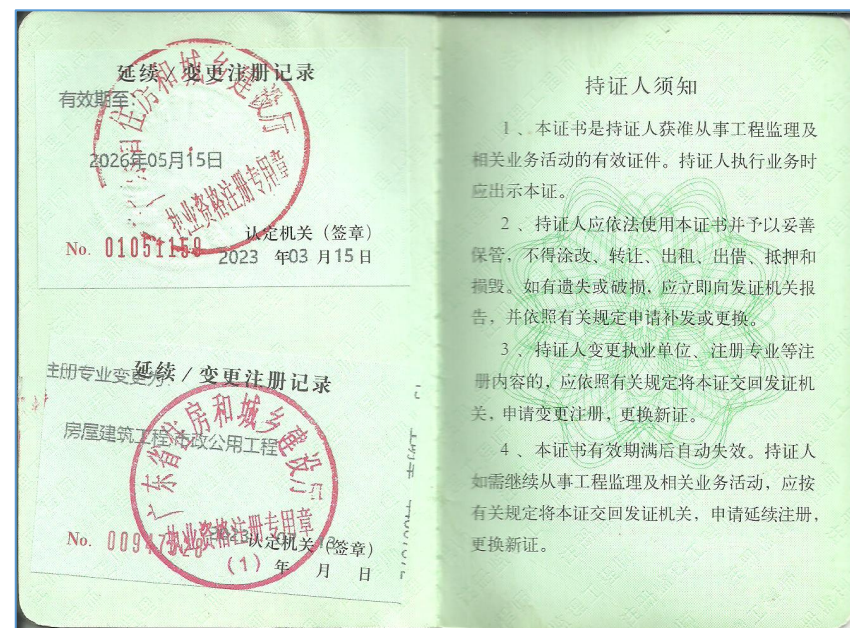 延续 / 变更注册记录
有效期至：
2026年05月15日
认定机关（签章）
No. 01051158
2023 年03 月15日
广东省住房和城乡建设厅
执业资格注册专用章
延续 / 变更注册记录
主册专业变更为
房屋建筑工程 市政公用工程
广东省住房和城乡建设厅
执业资格注册专用章
（1）
No.
认定机关（签章）
年 月 日
持证人须知
1 、本证书是持证人获准从事工程监理及
相关业务活动的有效证件。持证人执行业务时
应出示本证。
2 、持证人应依法使用本证书并予以妥善
保管，不得涂改、转让、出租、出借、抵押和
损毁。如有遗失或破损，应立即向发证机关报
告，并依照有关规定申请补发或更换。
3 、持证人变更执业单位、注册专业等注
册内容的，应依照有关规定将本证交回发证机
关，申请变更注册，更换新证。
4 、本证书有效期满后自动失效。持证人
如需继续从事工程监理及相关业务活动，应按
有关规定将本证交回发证机关，申请延续注册，
更换新证。